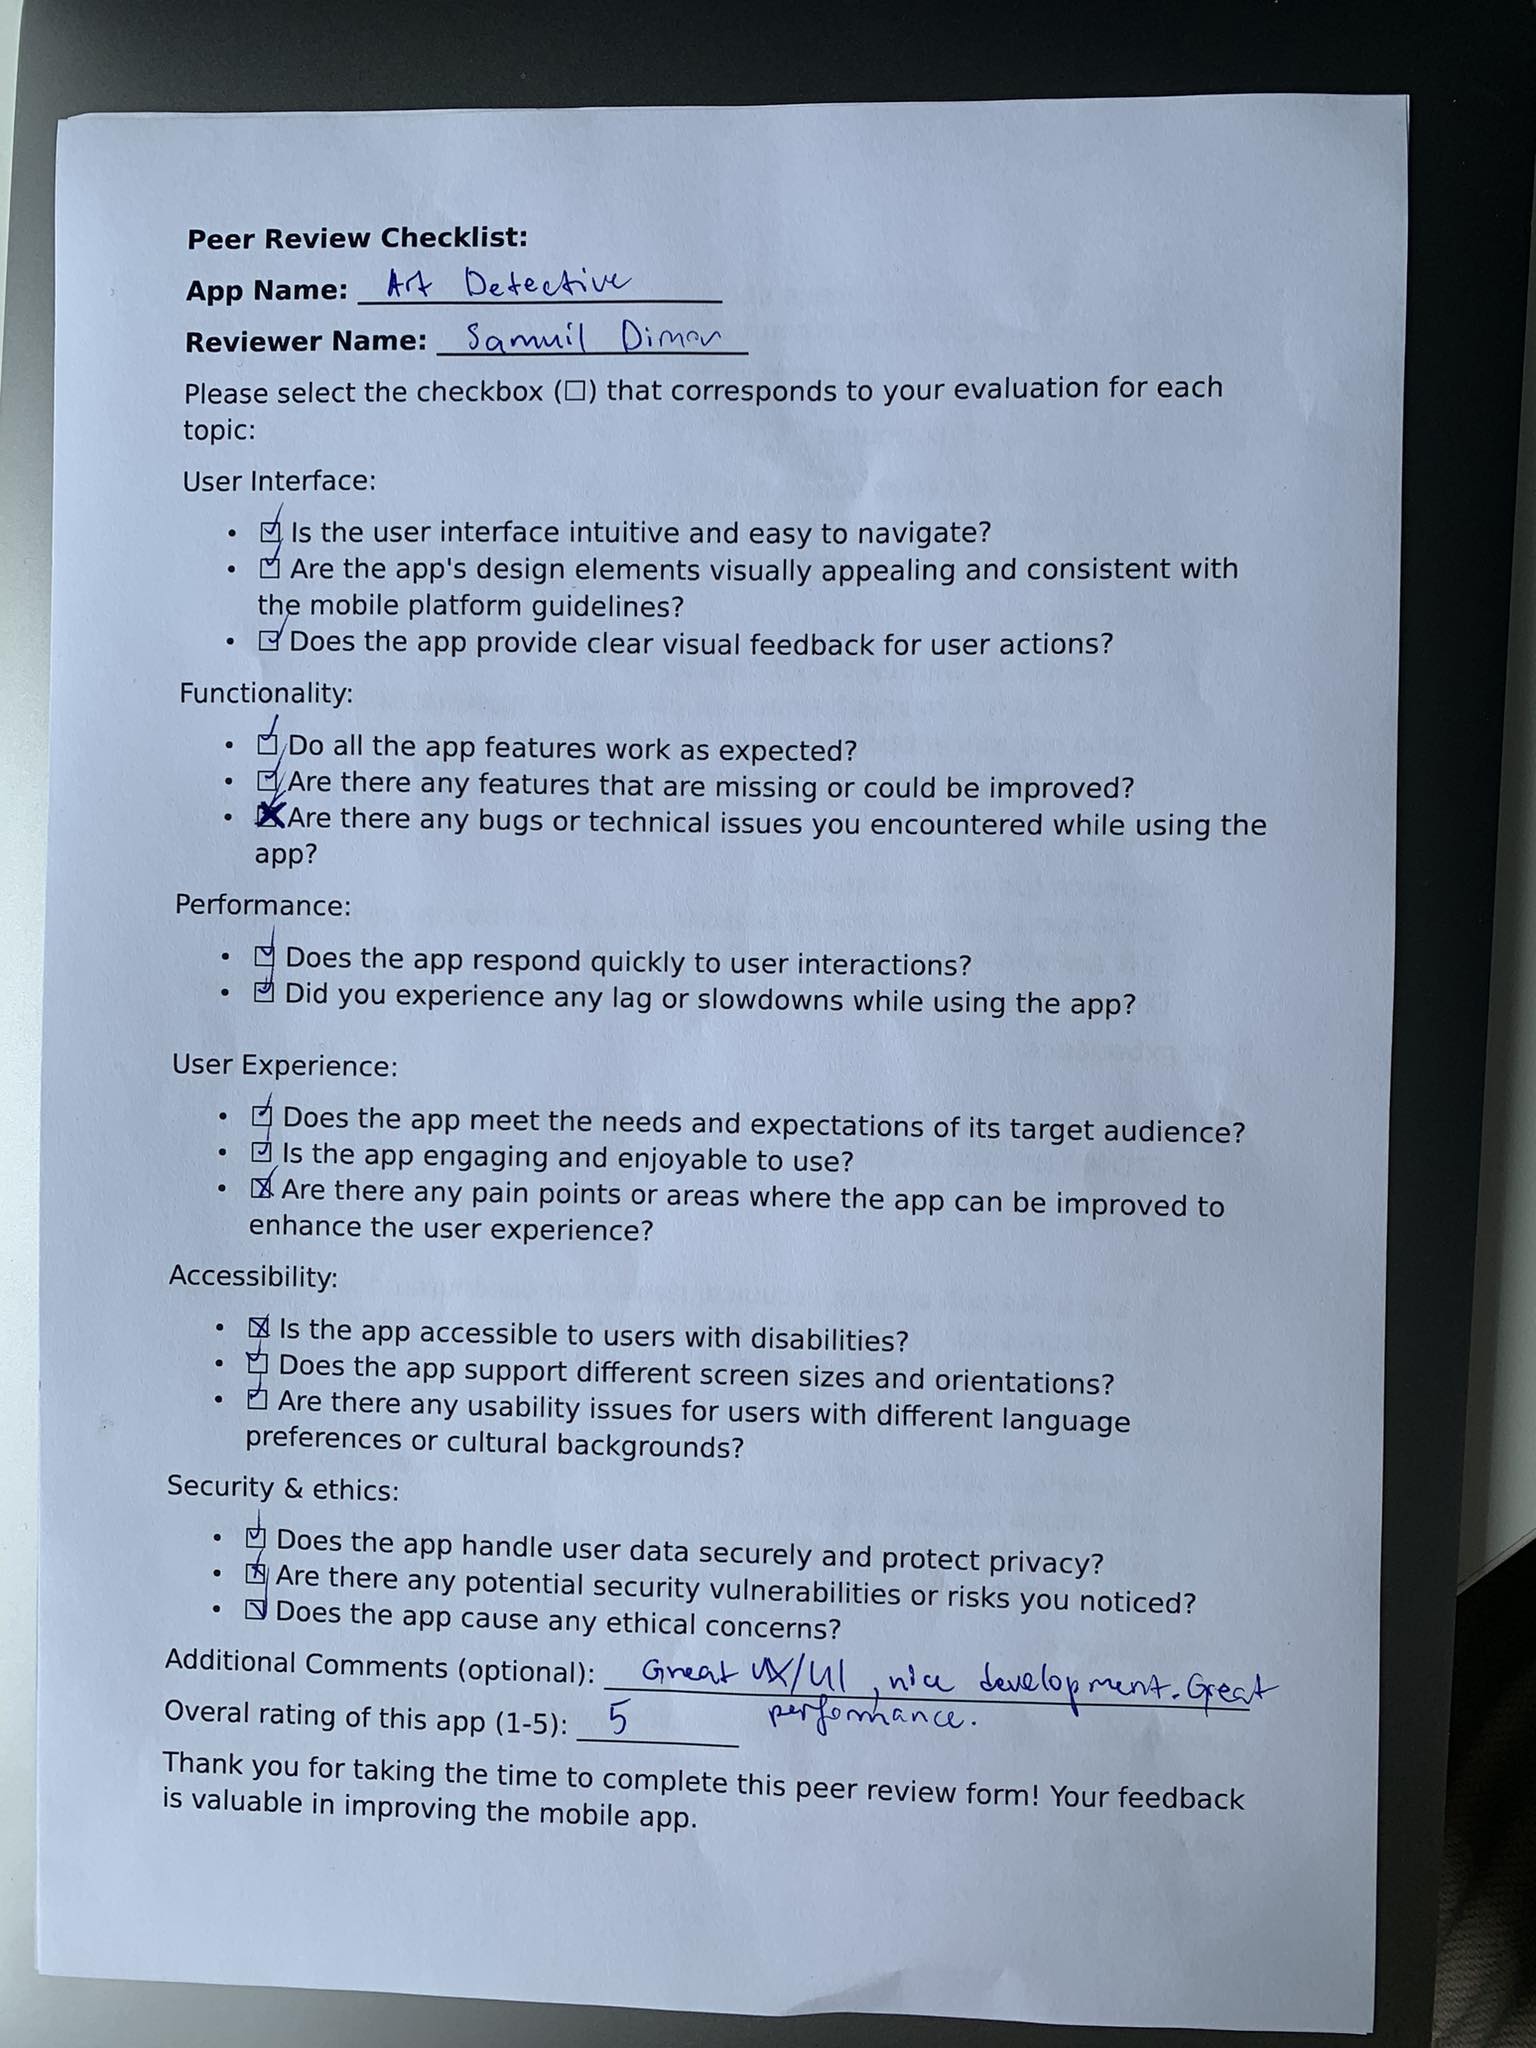 Peer Review Checklist:
App Name: Art Detective
Reviewer Name: Samuil Dimov
Please select the checkbox (☐) that corresponds to your evaluation for each
topic:
User Interface:
• ☑ Is the user interface intuitive and easy to navigate?
• ☑ Are the app's design elements visually appealing and consistent with
the mobile platform guidelines?
• ☑ Does the app provide clear visual feedback for user actions?
Functionality:
• ☑ Do all the app features work as expected?
• ☑ Are there any features that are missing or could be improved?
• ☒ Are there any bugs or technical issues you encountered while using the
app?
Performance:
• ☑ Does the app respond quickly to user interactions?
• ☑ Did you experience any lag or slowdowns while using the app?
User Experience:
• ☑ Does the app meet the needs and expectations of its target audience?
• ☑ Is the app engaging and enjoyable to use?
• ☒ Are there any pain points or areas where the app can be improved to
enhance the user experience?
Accessibility:
• ☒ Is the app accessible to users with disabilities?
• ☑ Does the app support different screen sizes and orientations?
• ☑ Are there any usability issues for users with different language
preferences or cultural backgrounds?
Security & ethics:
• ☑ Does the app handle user data securely and protect privacy?
• ☒ Are there any potential security vulnerabilities or risks you noticed?
• ☒ Does the app cause any ethical concerns?
Additional Comments (optional): Great UX/UI, nice development. Great
performance.
Overal rating of this app (1-5): 5
Thank you for taking the time to complete this peer review form! Your feedback
is valuable in improving the mobile app.